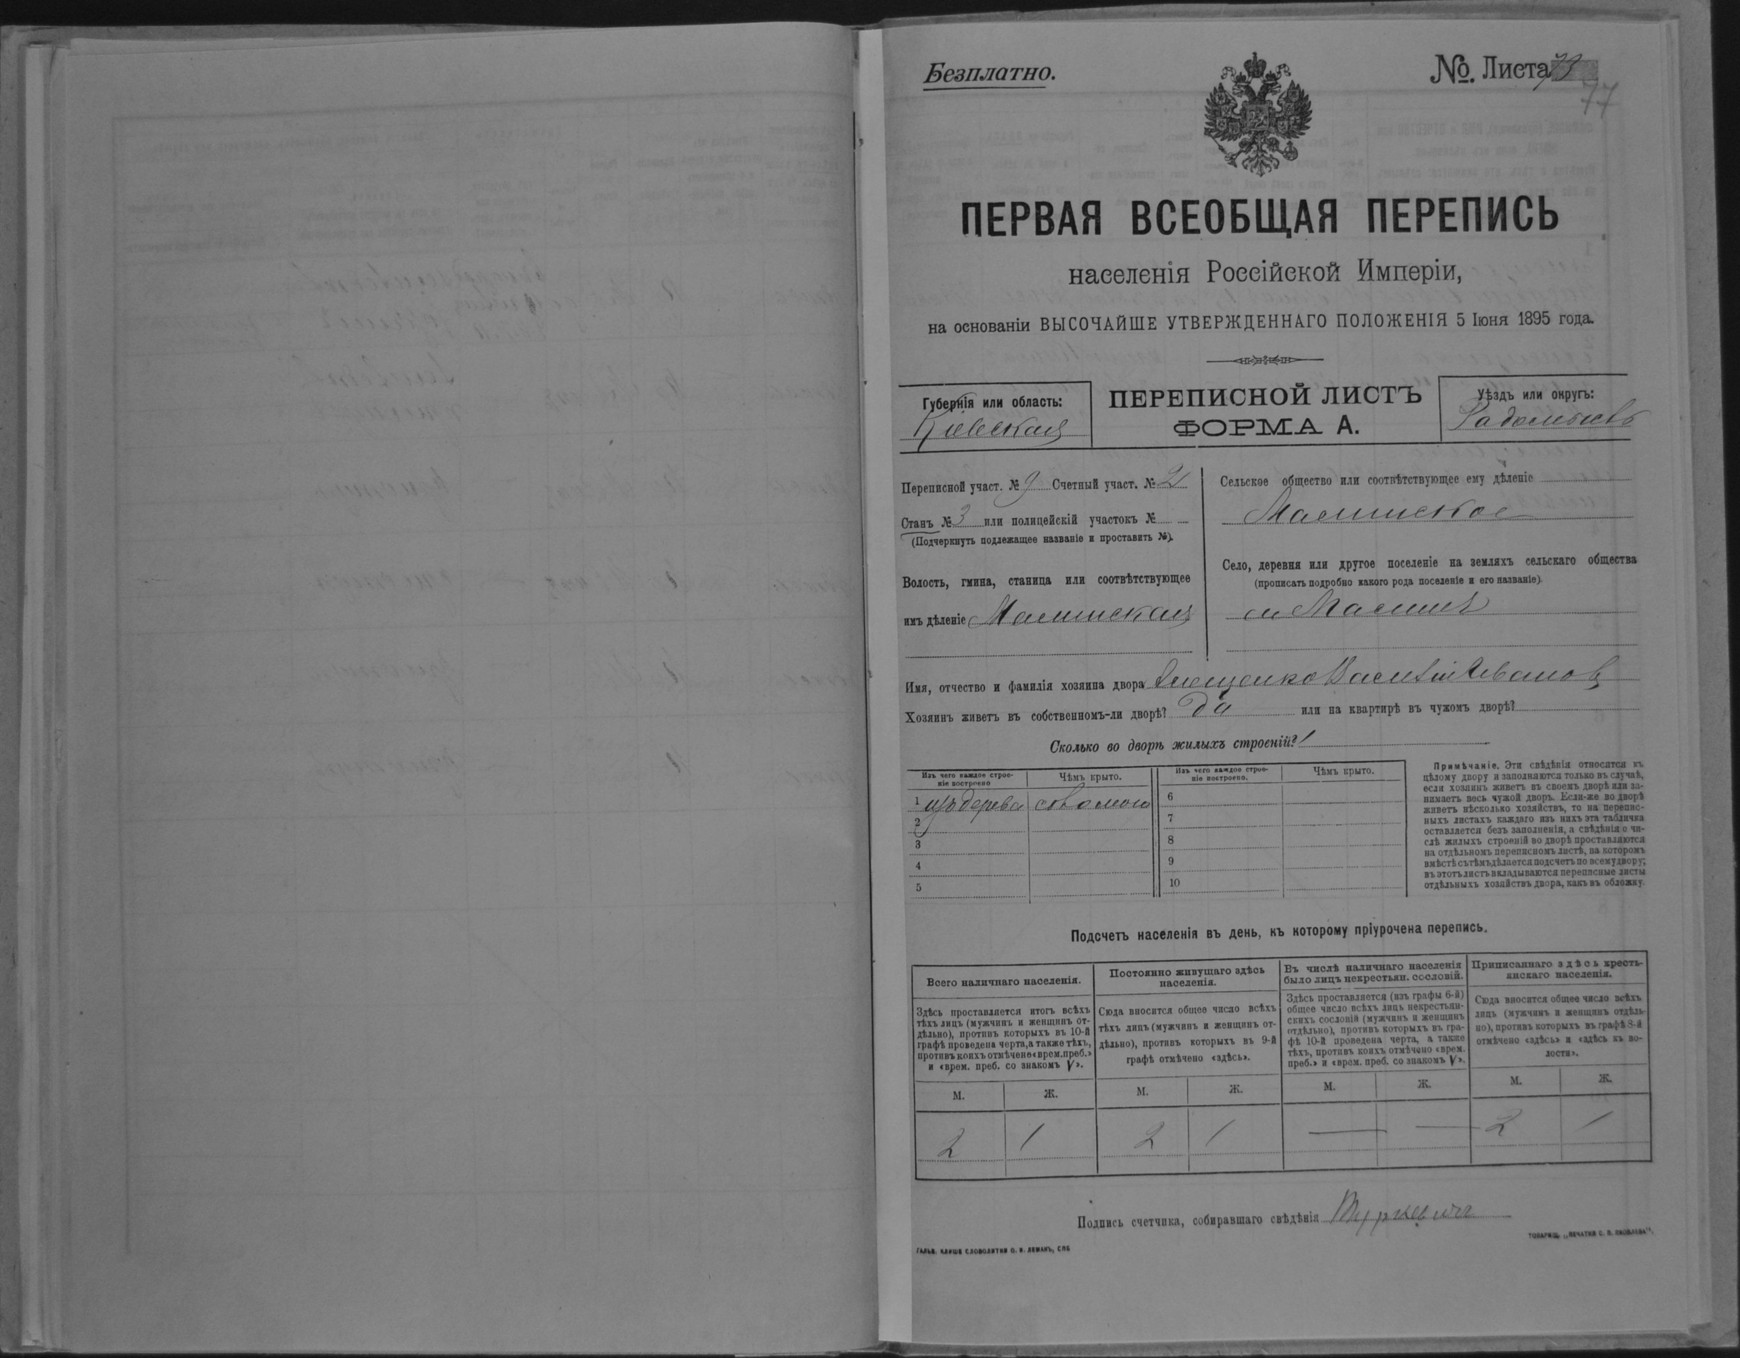 Безплатно.
№. Листа 73
77
ПЕРВАЯ ВСЕОБЩАЯ ПЕРЕПИСЬ
населенія Россійской Имперіи,
на основаніи ВЫСОЧАЙШЕ УТВЕРЖДЕННАГО ПОЛОЖЕНІЯ 5 Іюня 1895 года.
Губернія или область:
Кіевская
ПЕРЕПИСНОЙ ЛИСТЪ
ФОРМА А.
Уѣздъ или округъ:
Радомысл
Переписной участ. № 9 Счетный участ. № 21
Станъ № 3 или полицейскій участокъ №
(Подчеркнуть подлежащее названіе и проставить №).
Волость, гмина, станица или соотвѣтствующее
имъ дѣленіе Малинская
Сельское общество или соотвѣтствующее ему дѣленіе
Малинское
Село, деревня или другое поселеніе на земляхъ сельскаго общества
(прописать подробно какого рода поселеніе и его названіе)
м Малинъ
Имя, отчество и фамилія хозяина двора Василій Иванов
Хозяинъ живетъ въ собственномъ-ли дворѣ? да или на квартирѣ въ чужомъ дворѣ?
Сколько во дворѣ жилыхъ строеній? 1
Изъ чего каждое строе-
ніе построено
Чѣмъ крыто.
Изъ чего каждое строе-
ніе построено.
Чѣмъ крыто.
1 изъ дерева соломою
2
3
4
5
6
7
8
9
10
Примѣчаніе. Эти свѣдѣнія относятся къ
цѣлому двору и заполняются только въ случаѣ,
если хозяинъ живетъ въ своемъ дворѣ или за-
нимаетъ весь чужой дворъ. Если-же во дворѣ
живетъ нѣсколько хозяйствъ, то на перепис-
ныхъ листахъ каждаго изъ нихъ эта табличка
оставляется безъ заполненія, а свѣдѣнія о чи-
слѣ жилыхъ строеній во дворѣ проставляются
на отдѣльномъ переписномъ листѣ, на которомъ
вмѣстѣ съ тѣмъ дѣлается подсчетъ по всему двору;
въ этотъ листъ вкладываются переписные листы
отдѣльныхъ хозяйствъ двора, какъ въ обложку.
Подсчетъ населенія въ день, къ которому пріурочена перепись.
Всего наличнаго населенія.
Здѣсь проставляется итогъ всѣхъ
тѣхъ лицъ (мужчинъ и женщинъ от-
дѣльно), противъ которыхъ въ 10-й
графѣ проведена черта, а также тѣхъ,
противъ коихъ отмѣчено «врем. преб.»
и «врем. преб. со знакомъ V».
М. Ж.
2 1
Постоянно живущаго здѣсь
населенія.
Сюда вносится общее число всѣхъ
тѣхъ лицъ (мужчинъ и женщинъ от-
дѣльно), противъ которыхъ въ 9-й
графѣ отмѣчено «здѣсь».
М. Ж.
2 1
Въ числѣ наличнаго населенія
было лицъ некрестьян. сословій.
Здѣсь проставляется (изъ графы 6-й)
общее число всѣхъ лицъ некрестьян-
скихъ сословій (мужчинъ и женщинъ
отдѣльно), противъ которыхъ въ гра-
фѣ 10-й проведена черта, а также
тѣхъ, противъ коихъ отмѣчено «врем.
преб.» и «врем. преб. со знакомъ V».
М. Ж.
— —
Приписаннаго здѣсь кресть-
янскаго населенія.
Сюда вносится общее число всѣхъ
лицъ (мужчинъ и женщинъ отдѣль-
но), противъ которыхъ въ графѣ 8-й
отмѣчено «здѣсь» и «здѣсь къ во-
лости».
М. Ж.
2 1
Подпись счетчика, собиравшаго свѣдѣнія
ГАЛЬВ. КЛИШЕ СЛОВОЛИТНИ О. И. ЛЕМАНЪ, СПБ
ТОВАРИЩ. „ПЕЧАТНЯ С. П. ЯКОВЛЕВА".